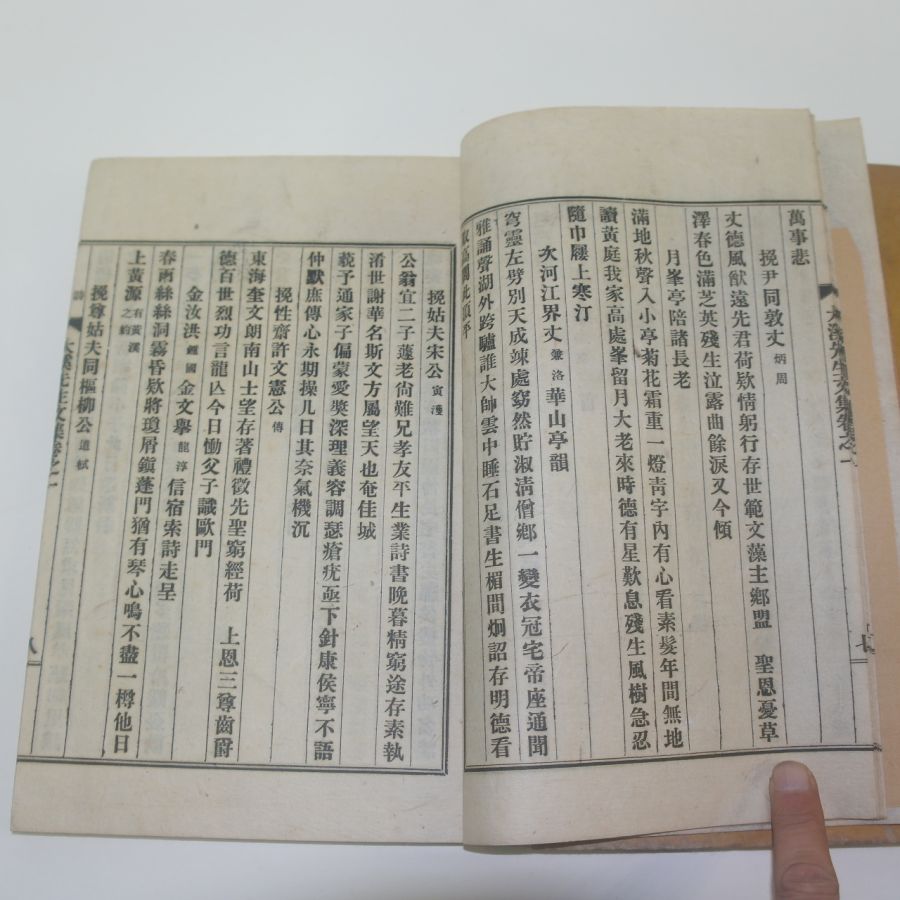 萬事悲
挽尹同敦丈 炳周
丈德風猷遠先君荷欵情躬行存世範文藻主鄉盟 聖恩憂草
澤春色滿芝英殘生泣露曲餘淚又今傾
月峯亭陪諸長老
滿地秋聲入小亭菊花霜重一燈靑字內有心看素髮年間無地
讀黃庭我家高處峯留月大老來時德有星歎息殘生風樹急忍
隨巾屨上寒汀
次河江界丈 兼洛 華山亭韻
穹靈左劈別天成竦處窈然貯淑淸僧鄉一變衣冠宅帝座通聞
雅誦聲湖外跨驢誰大帥雲中睡石足書生楣間炯詔存明德看
七
挽姑夫宋公 寅濩
公翁宜二子蓮老尙難兄孝友平生業詩書晩暮精窮途存素執
淆世謝華名斯文方屬望天也奄佳城
藐予通家子偏蒙愛奬深理義容調瑟瘡疣亟下針康侯寧不語
仲默庶傳心永期操几日其奈氣機沉
挽性齋許文憲公 傳
東海奎文朗南山士望存著禮徵先聖窮經荷 上恩三尊齒爵
德百世烈功言龍亾今日慟父子識歐門
金汝洪 金文擧 龍淳 信宿索詩走呈
春雨絲絲洞霧昏欵將瓊屑鎭蓬門猶有琴心鳴不盡一樽他日
上黃源 有黃溪之約
挽尊姑夫同樞柳公 道
八